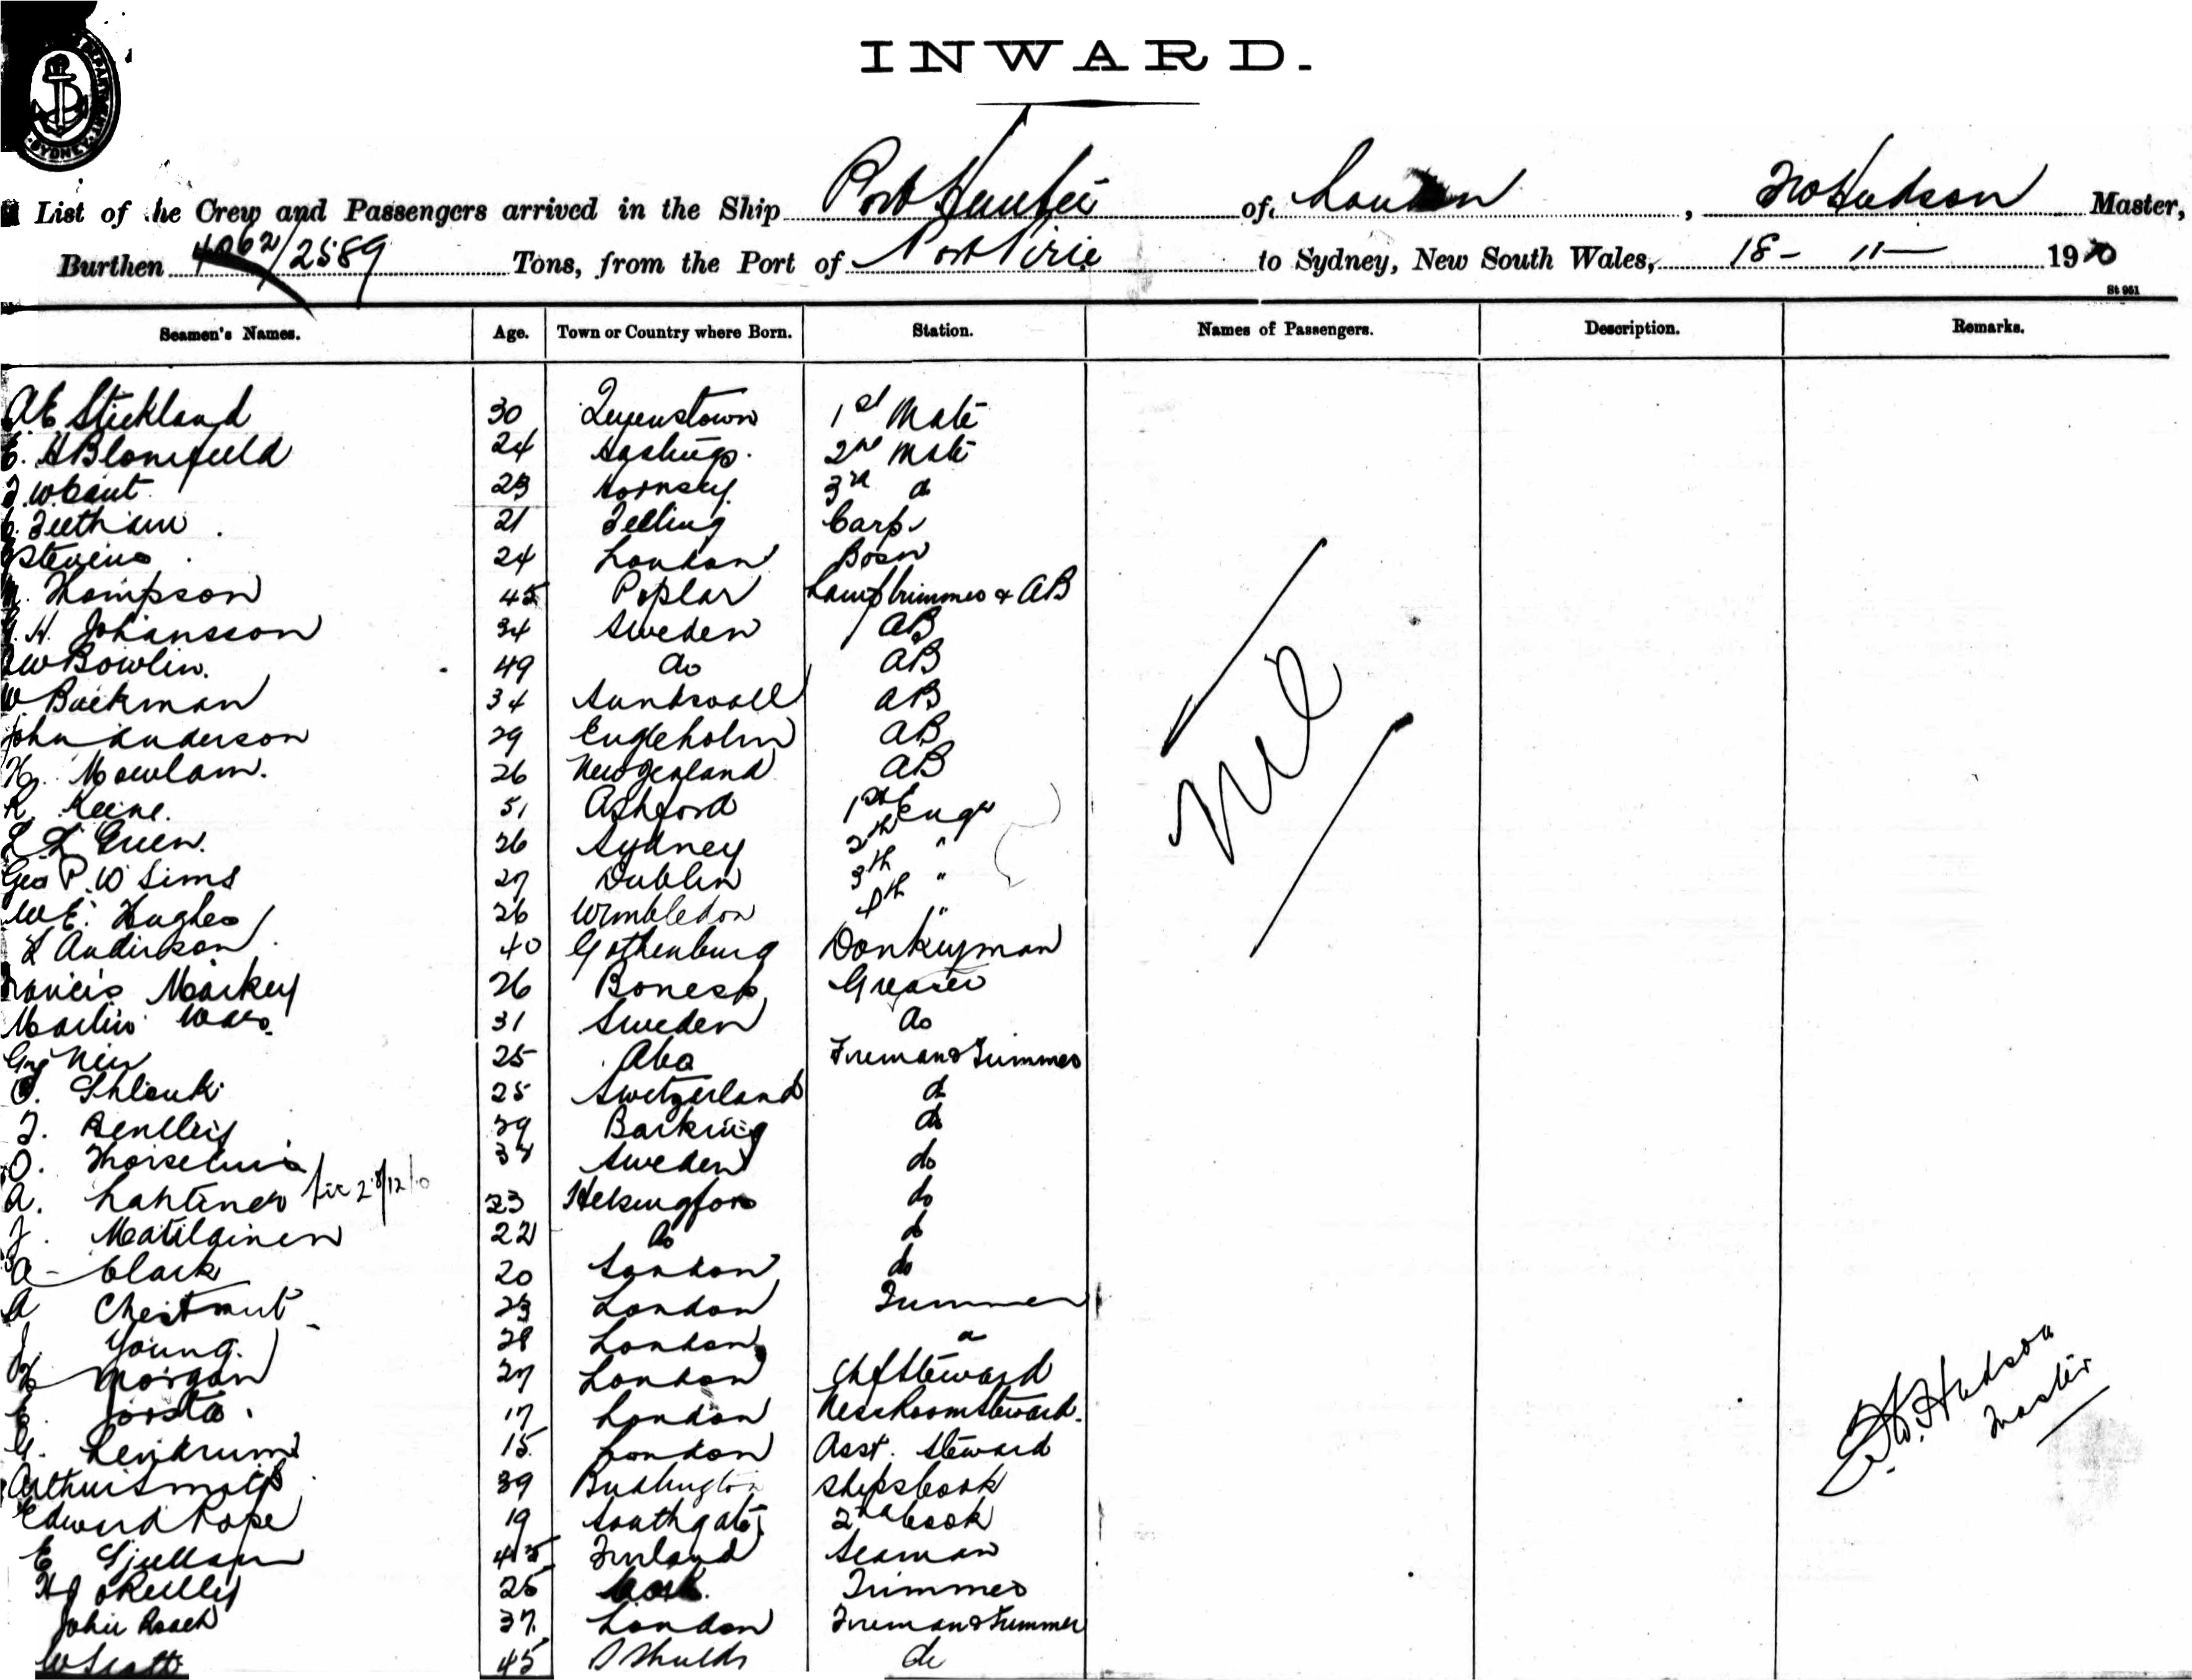 INWARD.
SYDNEY
List of the Crew and Passengers arrived in the Ship Port Hunter of London, Hudson Master,
Burthen 4062/2589 Tons, from the Port of Port Pirie to Sydney, New South Wales, 18 - 11 - 1910
St 951
Seamen's Names. Age. Town or Country where Born. Station. Names of Passengers. Description. Remarks.
A E Stickland 30 Queenstown 1st Mate
H Blomfield 24 Hastings. 2nd Mate
W Cant 23 Hornsey 3rd do
Feetham 21 Felling Carp.
Stevens 24 London Bosn
Thompson 45 Poplar Lamptrimmer & AB
H. Johansson 34 Sweden AB
W Bowlin. 49 do AB
W Backman 34 Sundsvall AB
John Anderson 29 Engleholm AB
H. Mowlam. 26 New Zealand AB
R. Keene. 51 Ashford 1st Engr
L L Green. 26 Sydney 2th "
Geo P. W Sims 27 Dublin 3th "
W E. Hughes 26 Wimbledon 4th "
L Anderson 40 Gothenburg Donkeyman
Francis Markey 26 Boness Greaser
Martin 31 Sweden do
25 Abo Fireman & Trimmer
25 Switzerland do
29 Barking do
O. 34 Sweden do
A. Lahtinen 23 Helsingfors do
J. Matilainen 22 do do
A - Clark 20 London do
A Chestnut 23 London Trimmer
J. Young. 28 London do
H Morgan 27 London Chf Steward
E. 17 London Mess Room Steward.
G. Lendrum 15 London Asst. Steward
Arthur Smith 39 Ships Cook
Edward Pope 19 Southgate 2nd Cook
E 45 Finland Seaman
H J O'Reilly 25 Cork. Trimmer
John Roach 37. London Fireman & Trimmer
W Scott 45 S Shields do
Nil
Hudson
Master